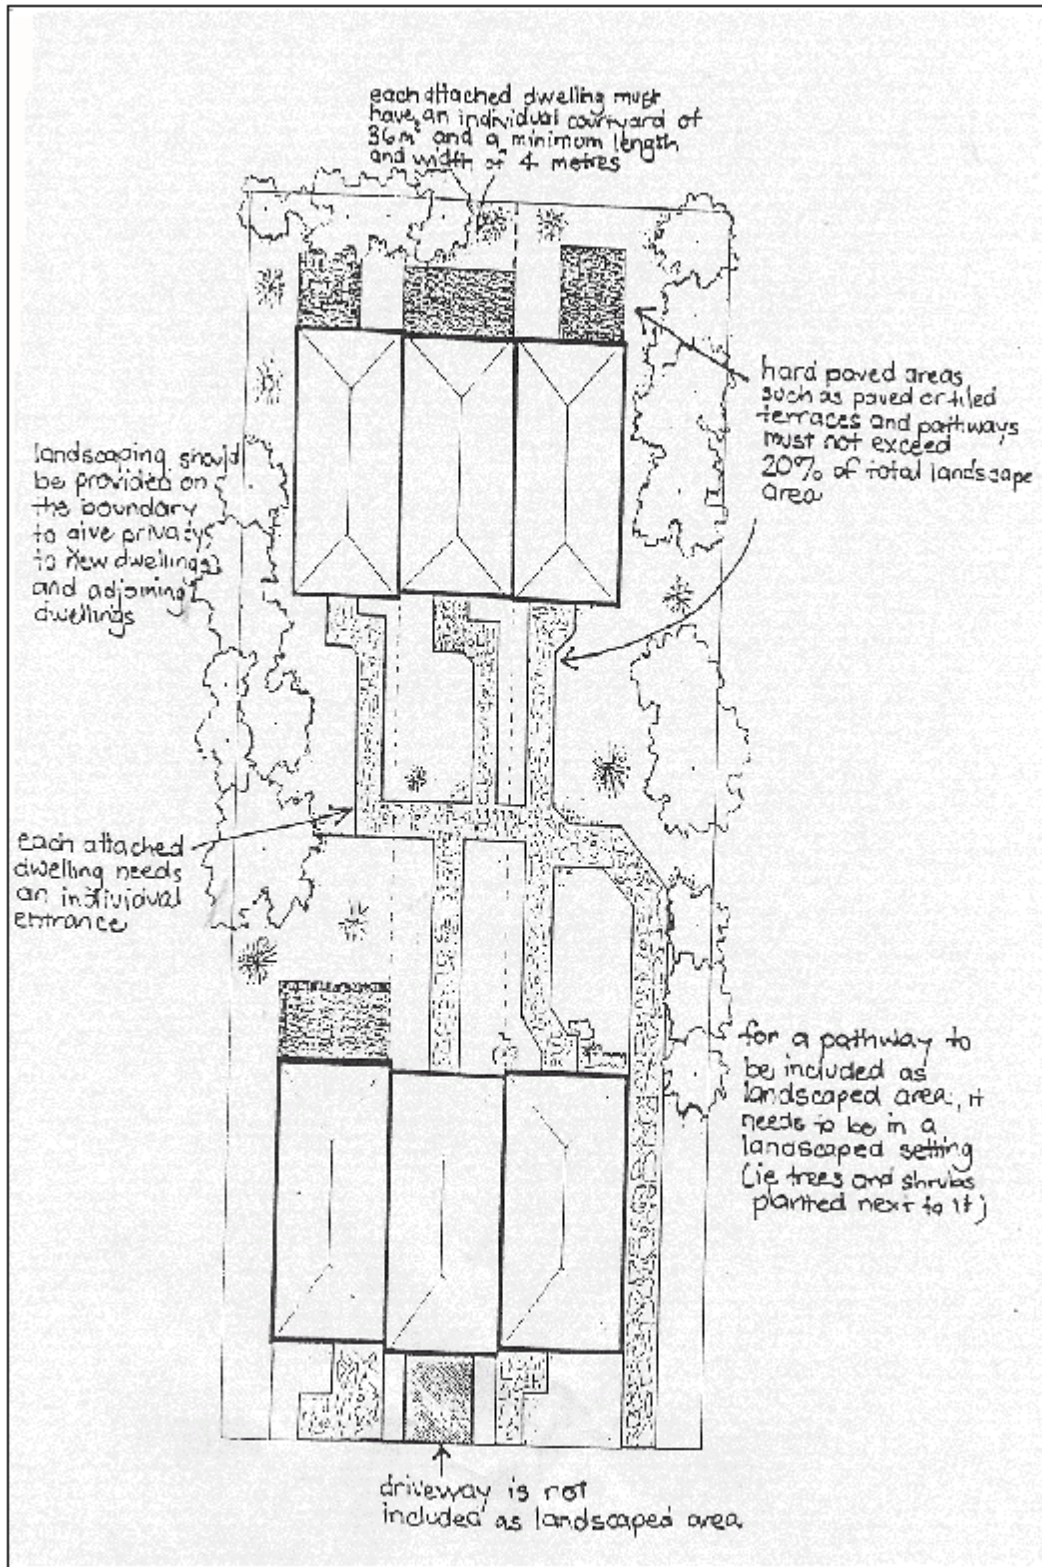 each attached dwelling must
have an individual courtyard of
36m² and a minimum length
and width of 4 metres
hard paved areas
such as paved or tiled
terraces and pathways
must not exceed
20% of total landscape
area
landscaping should
be provided on
the boundary
to give privacy
to new dwellings
and adjoining
dwellings
each attached
dwelling needs
an individual
entrance
for a pathway to
be included as
landscaped area, it
needs to be in a
landscaped setting
(ie trees and shrubs
planted next to it)
driveway is not
included as landscaped area